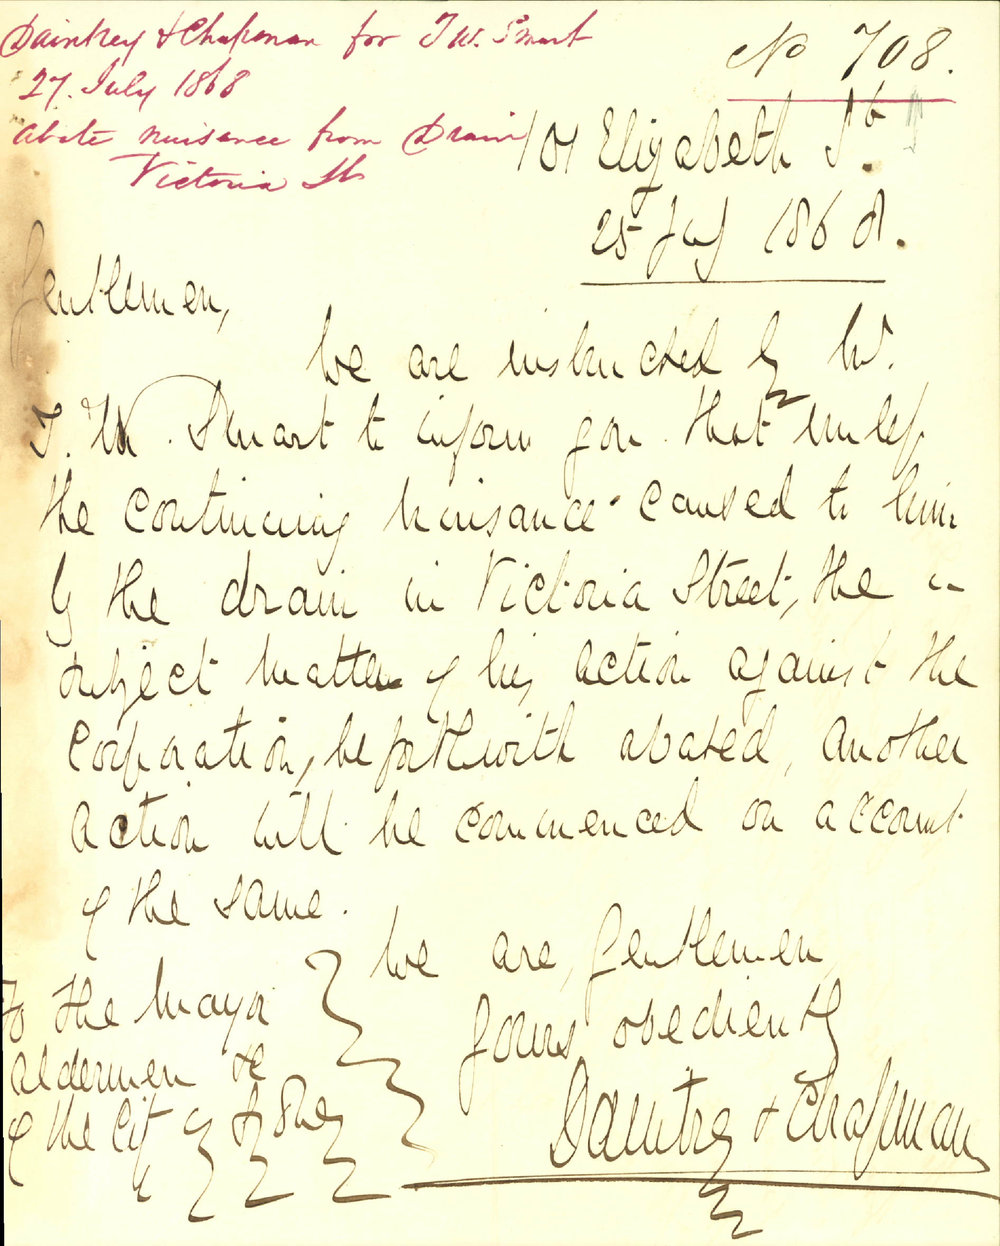 Daintrey & Chapman for T.W. Smart
27. July 1868
abate nuisance from Drain
Victoria St
No 708.
101 Elizabeth St.
25 July 1868.
Gentlemen,
We are instructed by Mr.
T. W. Smart to inform you that unless
the continuing nuisance caused to him
by the drain in Victoria Street, the
subject matter of his action against the
Corporation, be forthwith abated, another
action will be commenced on account
of the same.
We are, Gentlemen
Yours obediently
Daintrey & Chapman
To the Mayor
Aldermen &c
of the City of Sydney